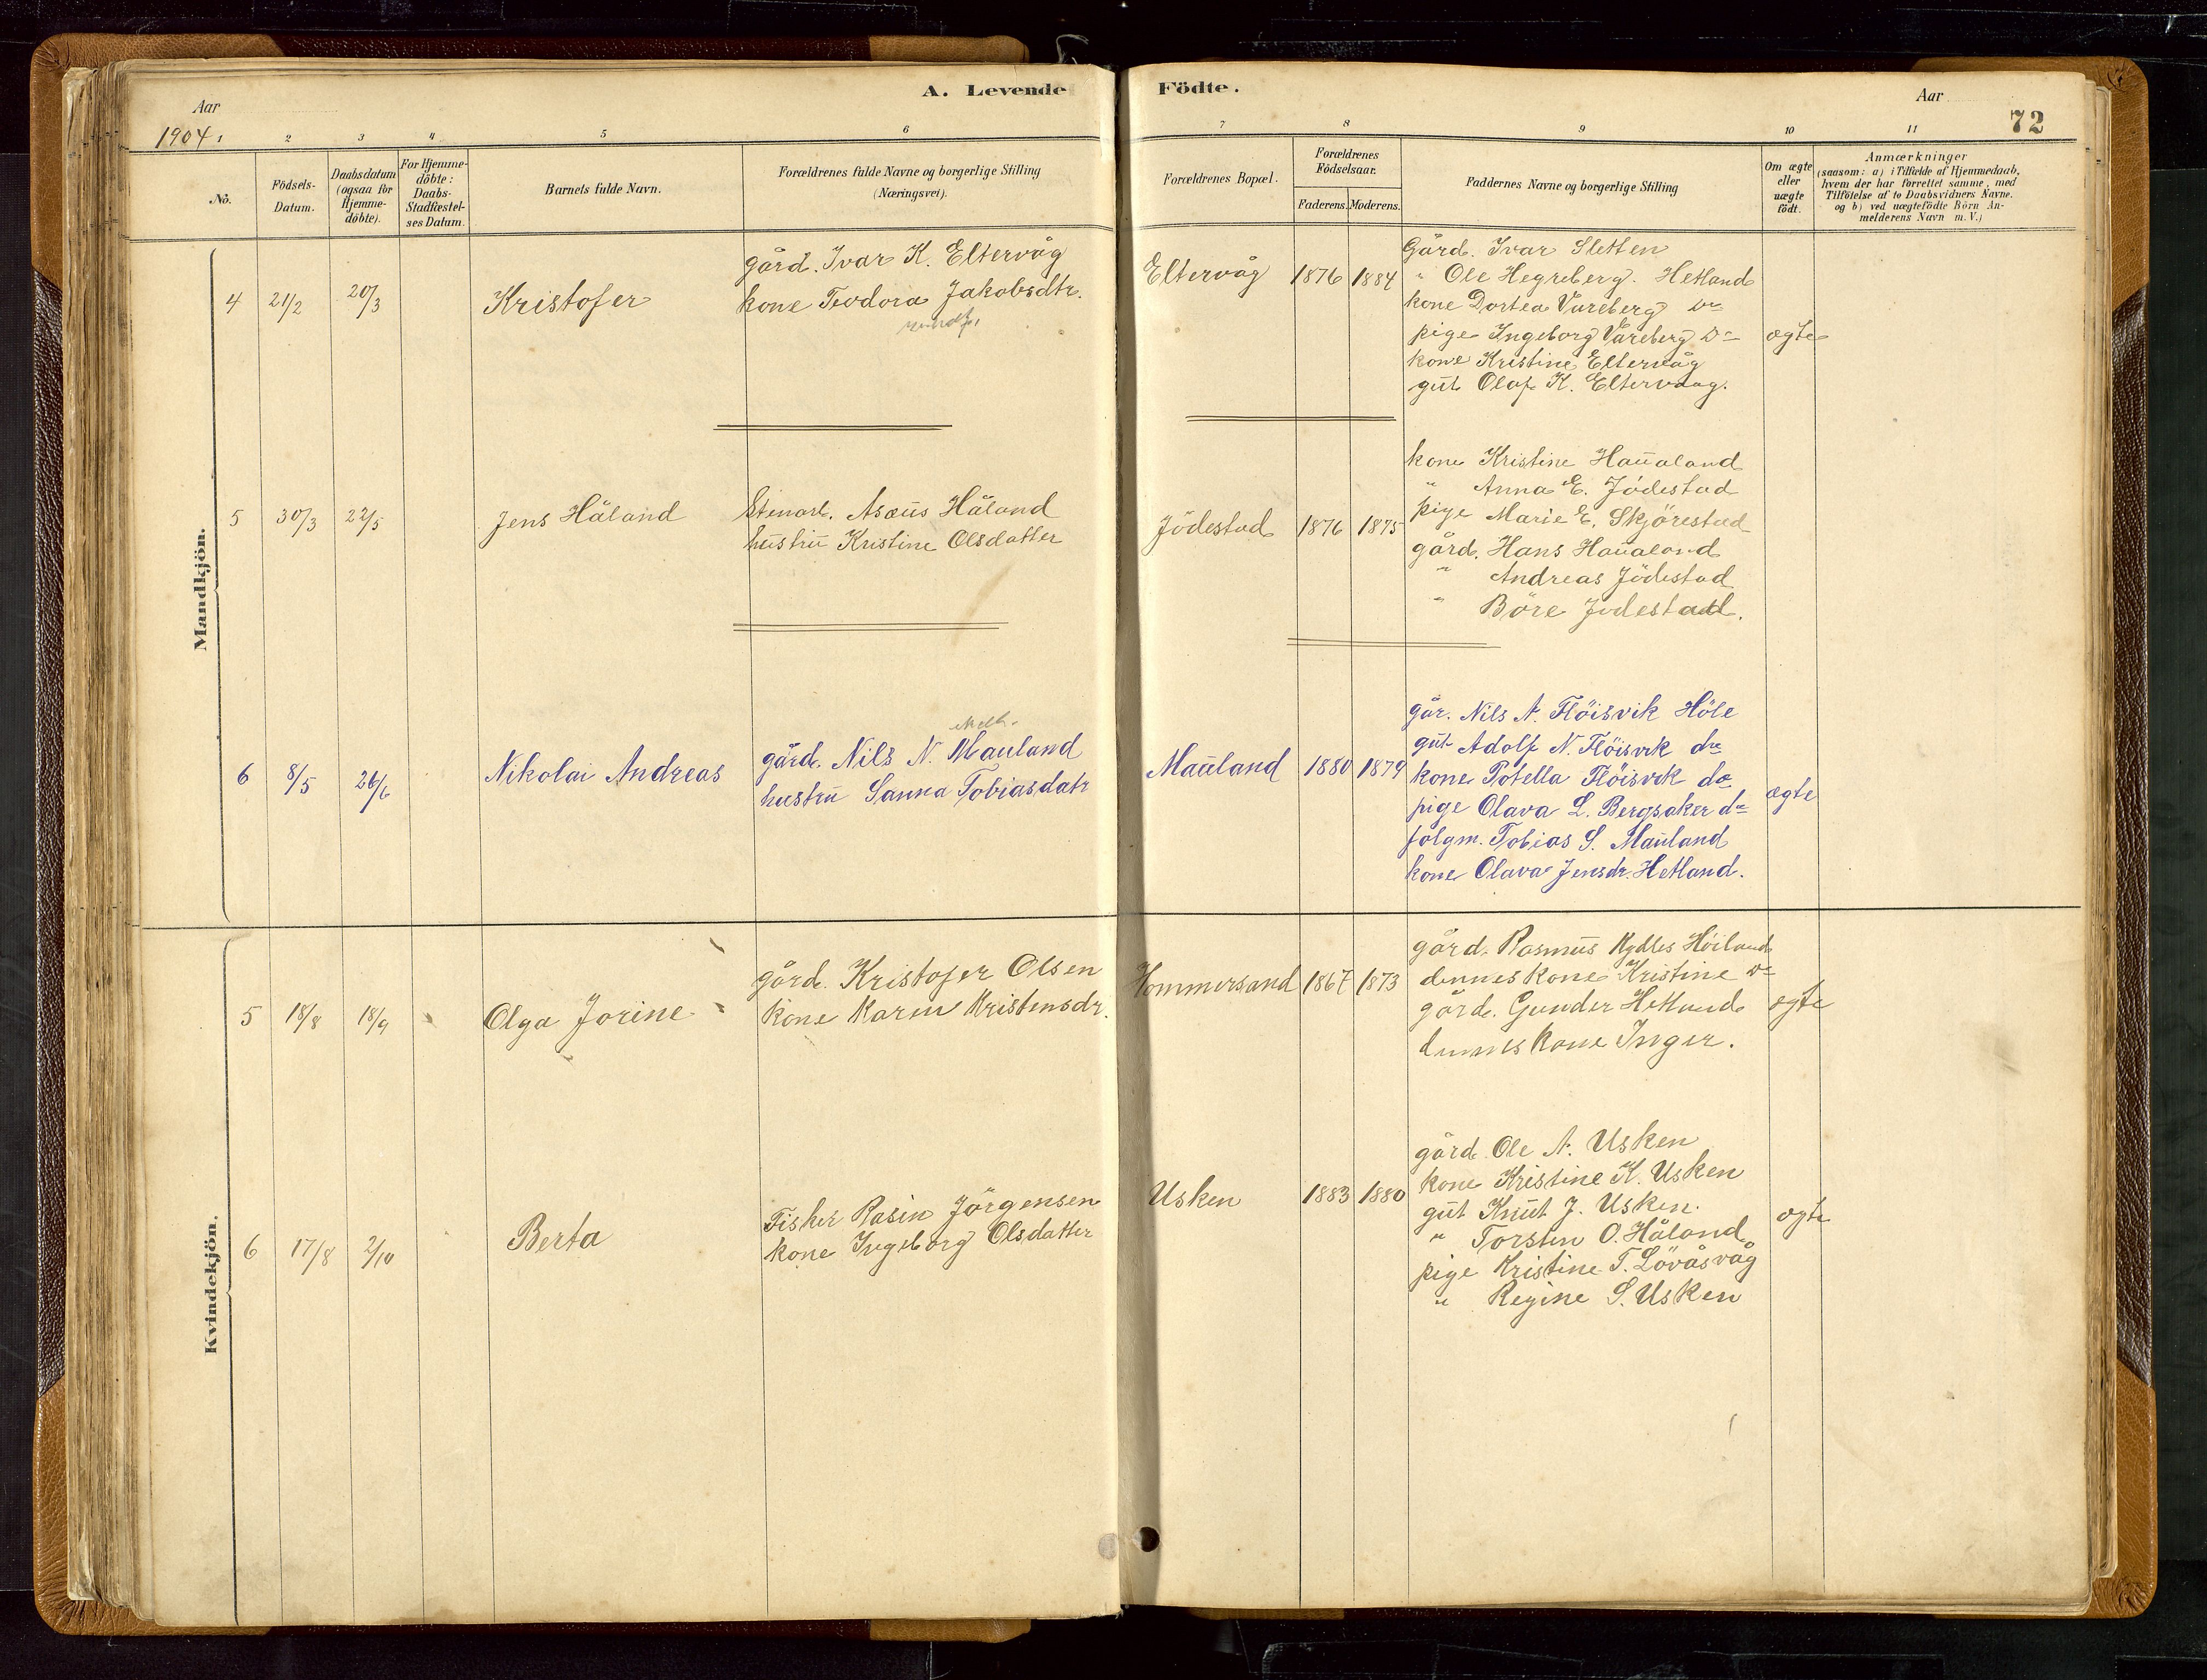 A. Levende Födte.
Aar
1904.
Aar
72
1 2 3 4 5 6 7 8 9 10 11
No.
Födsels-
Datum.
Daabsdatum
(ogsaa for
Hjemme-
döbte).
For Hjemme-
döbte:
Daabs-
Stadfæstel-
ses Datum.
Barnets fulde Navn.
Forældrenes fulde Navne og borgerlige Stilling
(Næringsvei).
Forældrenes Bopæl.
Forældrenes
Födselsaar.
Faderens. Moderens.
Faddernes Navne og borgerlige Stilling
Om ægte
eller
uægte
født.
Anmærkninger
(saasom: a) i Tilfælde af Hjemmedaab,
hvem der har forrettet samme, med
Tilföielse af to Daabsvidners Navne.
og b) ved uægtefödte Börn An-
melderens Navn m. V.)
Mandkjön.
4 21/2 20/3 Kristofer
gård. Ivar K. Eltervåg
kone Teodora Jakobsdtr.
Eltervåg 1876 1884
Gård. Ivar Sletten
" Ole Hegreberg. Hetland
kone Dortea Vareberg Do
pige Ingeborg Vareberg Do
kone Kristine Eltervåg
gut Olaf K. Eltervaag.
ægte
5 30/3 22/5 Jens Håland
Stenarb. Asæus Håland
hustru Kristine Olsdatter
Jödestad 1876 1875
kone Kristine Haualand
" Anna E. Jödestad
pige Marie E. Skjörestad
gård. Hans Haualand
" Andreas Jödestad
" Böre Jödestad.
6 8/5 26/6 Nikolai Andreas
gård. Nils N. Mauland
hustru Sanna Tobiasdatr
Mauland 1880 1879
går. Nils A. Flöisvik Höle
gut Adolf N. Flöisvik do
kone Potella Flöisvik do
pige Olava L. Bergsaker do
fölgm. Tobias S. Mauland
kone Olava Jensdr. Hetland.
ægte
Kvindekjön.
5 18/8 18/9 Olga Jorine
gård. Kristofer Olsen
kone Karen Kristensdr.
Hommersand 1867 1873
gård. Rasmus Kydles Höiland
dennes kone Kristine Do
gård. Gunder Hetland
dennes kone Inger.
ægte
6 17/8 2/10 Berta
Fisker Rasin Jörgensen
kone Ingeborg Olsdatter
Usken 1883 1880
gård Ole A. Usken
kone Kristine K. Usken
gut Knut J. Usken.
" Torsten O. Håland
pige Kristine T. Lövåsvåg
" Regine S. Usken
ægte